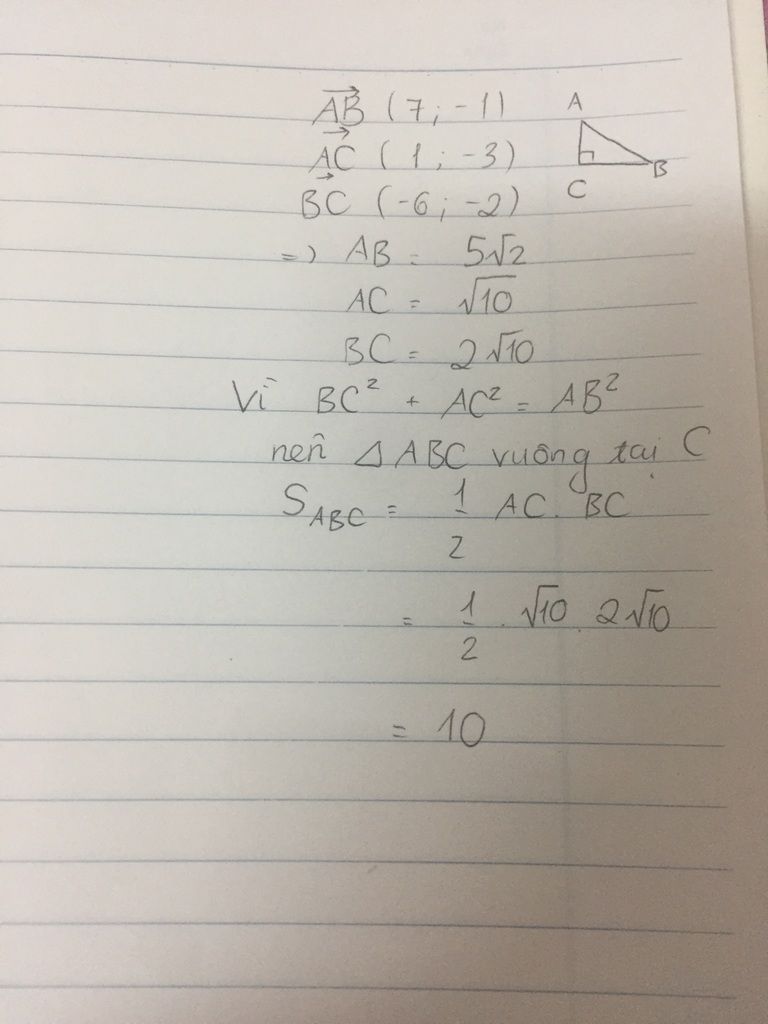 AB (7; -1)
AC (1; -3)
BC (-6; -2)
=) AB = 5√2
AC = √10
BC = 2√10
Vì BC² + AC² = AB²
nên △ABC vuông tại C
S_ABC = 1/2 AC. BC
= 1/2 . √10 . 2√10
= 10
A
B
C